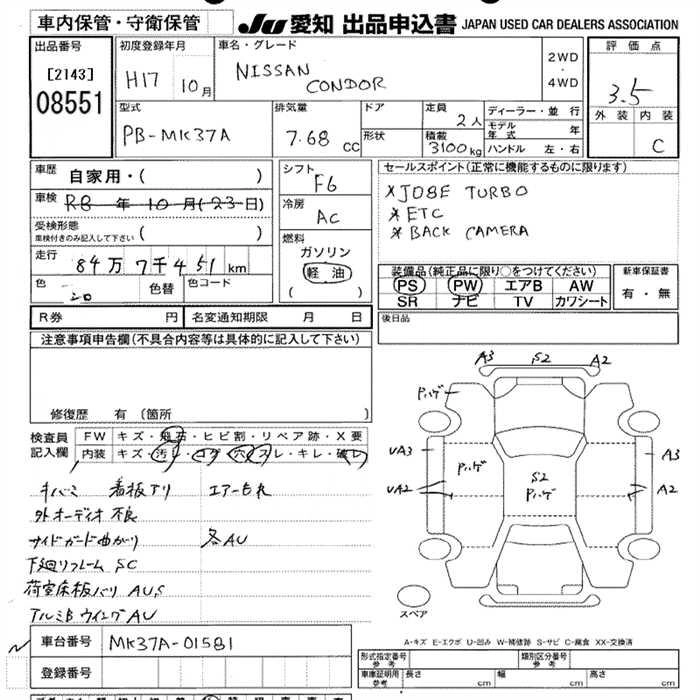 車内保管・守衛保管
JU 愛知 出品申込書 JAPAN USED CAR DEALERS ASSOCIATION
出品番号
[2143]
08551
初度登録年月
H17 10月
車名・グレード
NISSAN
CONDOR
2WD
・
4WD
評価点
3.5
外装 内装
C
型式
PB-MK37A
排気量
7.68 CC
ドア
形状
定員
2人
積載
3100kg
ディーラー・並行
モデル年式 年
ハンドル 左・右
車歴
自家用・( )
車検
R8 年 10月(23日)
受検形態
車検付きのみ記入して下さい ( )
走行
84万7千451km
色 色替 色コード
シロ
シフト
F6
冷房
AC
燃料
ガソリン
軽油
( )
セールスポイント(正常に機能するものに限ります)
*J08E TURBO
*ETC
*BACK CAMERA
装備品(純正品に限り○をつけてください)
PS PW エアB AW
SR ナビ TV カワシート
新車保証書
有・無
R券 円 名変通知期限 月 日
後日品
注意事項申告欄(不具合内容等は具体的に記入して下さい)
修復歴 有(箇所 )
検査員
記入欄
FW キズ・飛石・ヒビ割・リペア跡・X要
内装 キズ・汚レ・コゲ・穴・スレ・キレ・破レ
キバミ 看板アリ エアーもれ
外オーディオ不良
サイドガード曲がり 各AU
下廻リフレームSC
荷室床板バリ AUS
アルミBウイングAU
A3 S2 A2
Pハゲ
UA3 A3
Pハゲ
UA2 A2
S2
Pハゲ
スペア
A-キズ E-エクボ U-凹み W-補修跡 S-サビ C-腐食 XX-交換済
車台番号 MK37A-01581
登録番号
形式指定番号 参考
類別区分番号 参考
車庫証明用 参考 長さ cm 幅 cm 高さ cm